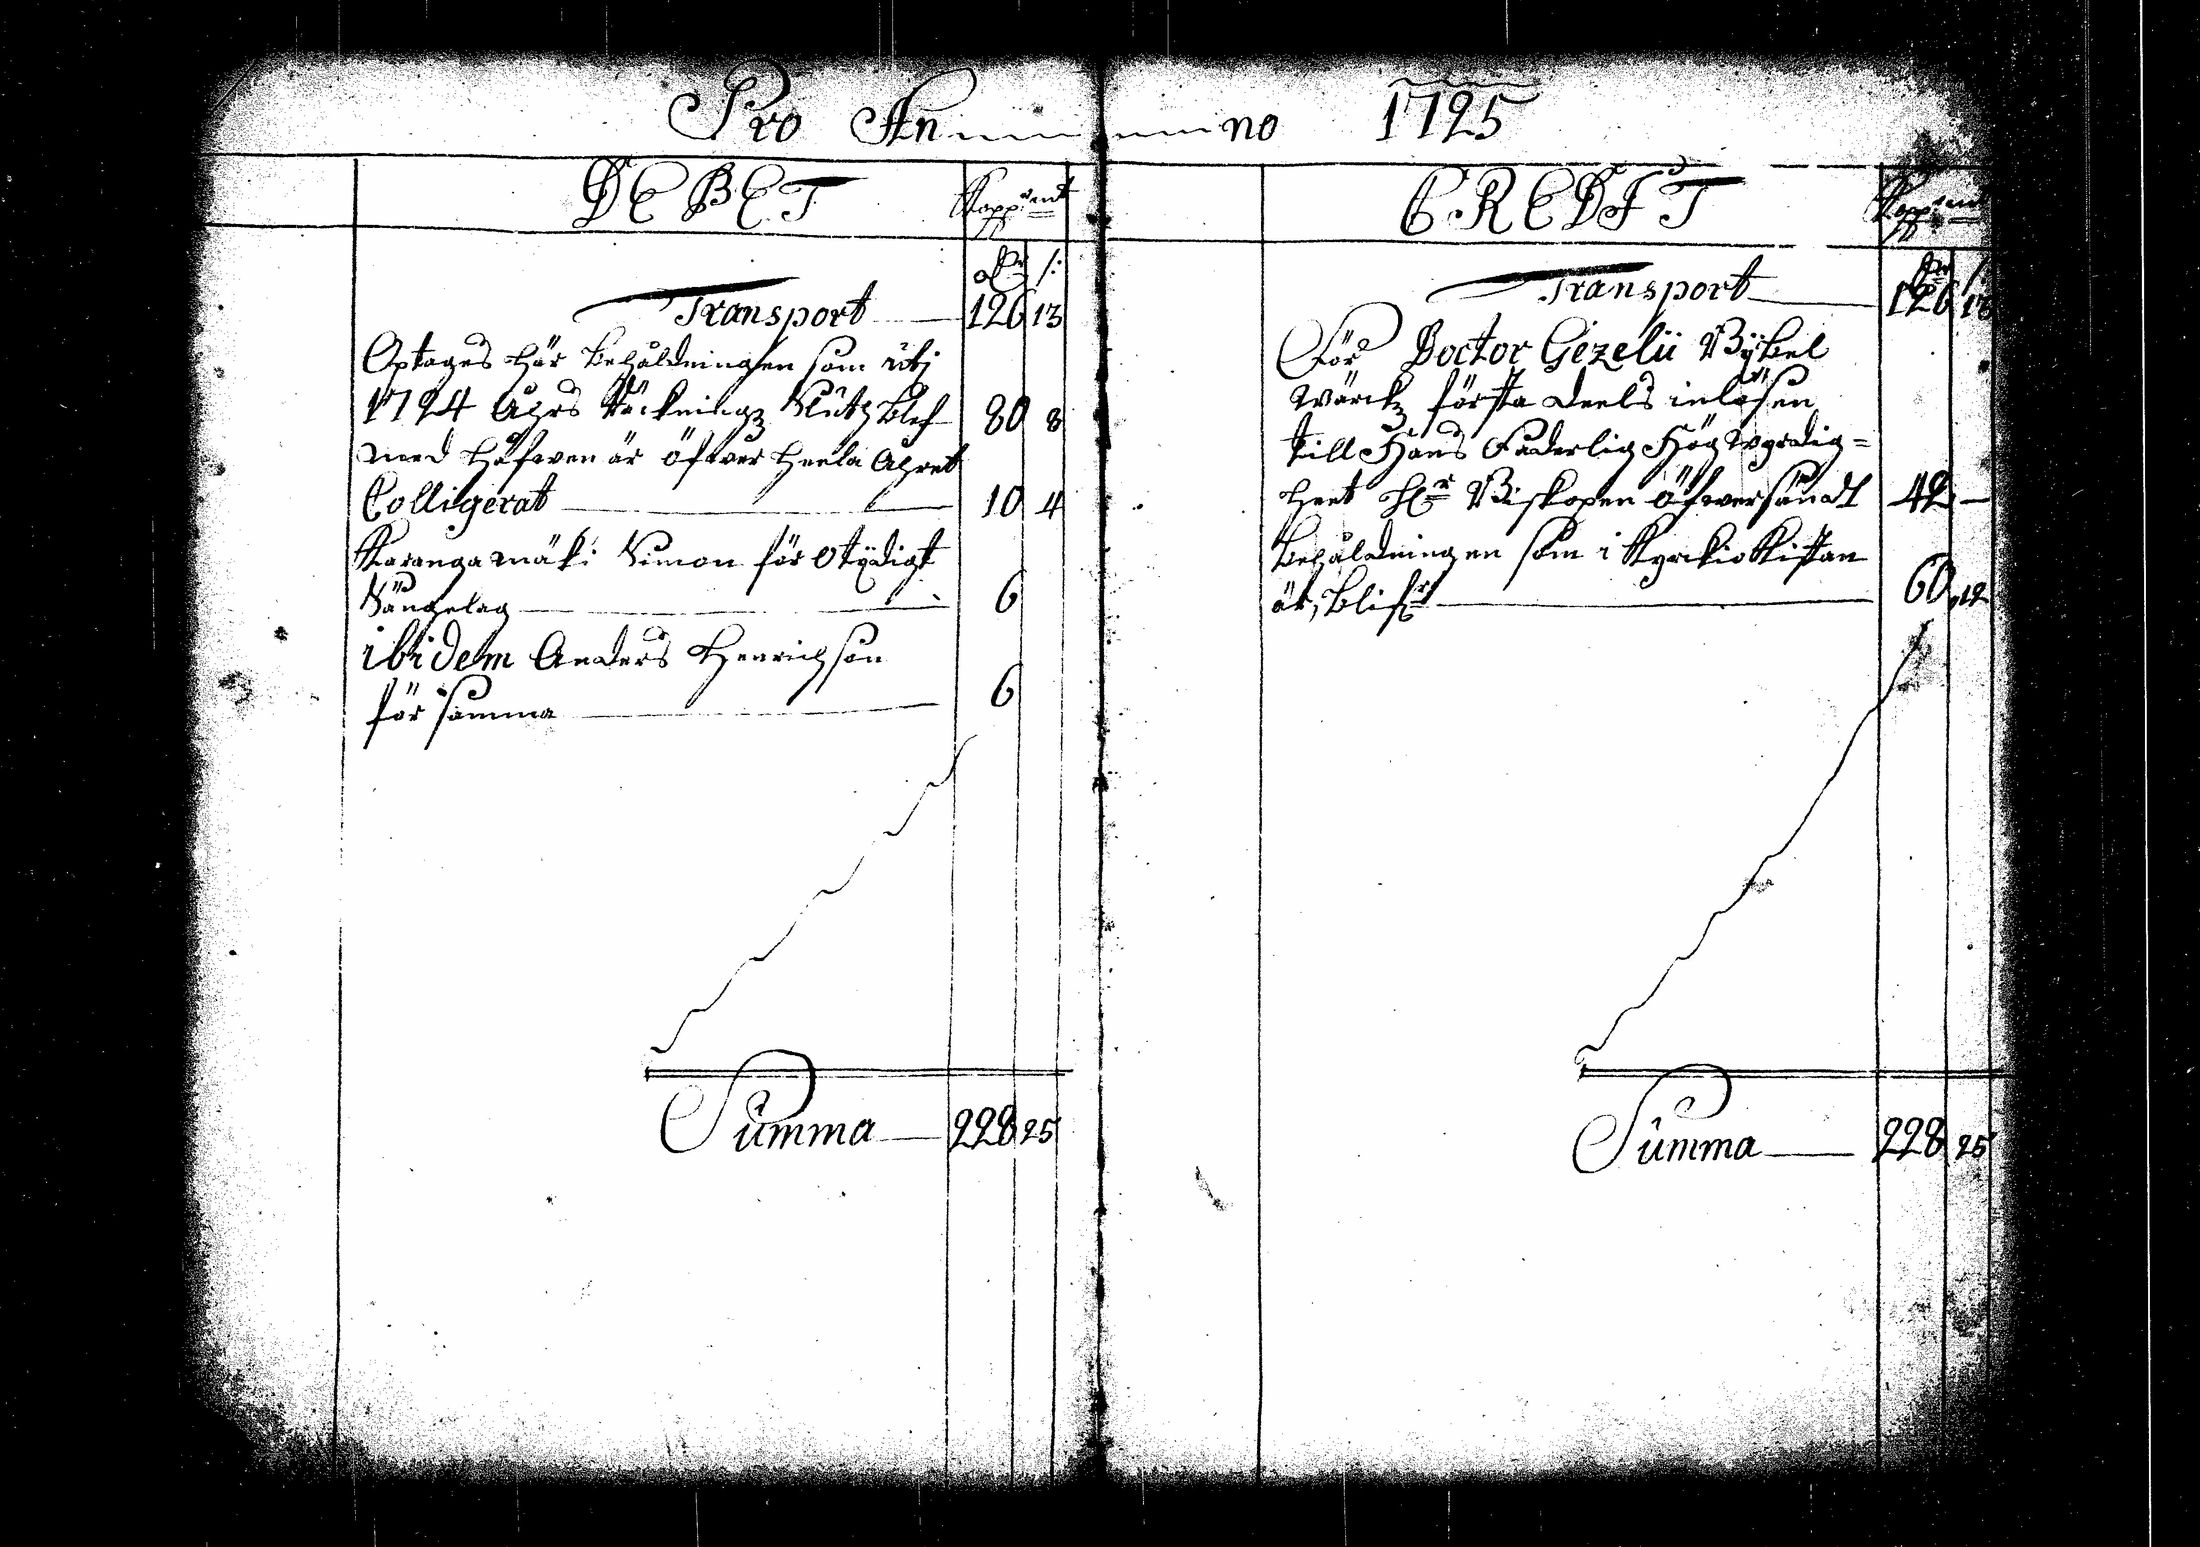 Pro An no 1725
DEBET Kopp: mt
dlr /:
Transport 126 13
Optages här behåldningen som uti
1724 Ahrs Räckningz Sluth blef 80 8
med håfwen är öfwer heela Ahret
Colligerat 10 4
Karangamäki Simon för otijdigt
Sängelag 6
ibidem Anders Henrichson
för samma 6
Summa 228 25
CREDIT Kopp: mt
dlr /:
Transport 126 13
För Doctor Gezelii Bijbel
wärckz första deels inlösen
till Hans Faderlig Högwyrdig=
heet Hr Biskopen öfwersändt 42 —
Behåldningen som i Kyrckio Kistan
är, blifr 60 12
Summa 228 25